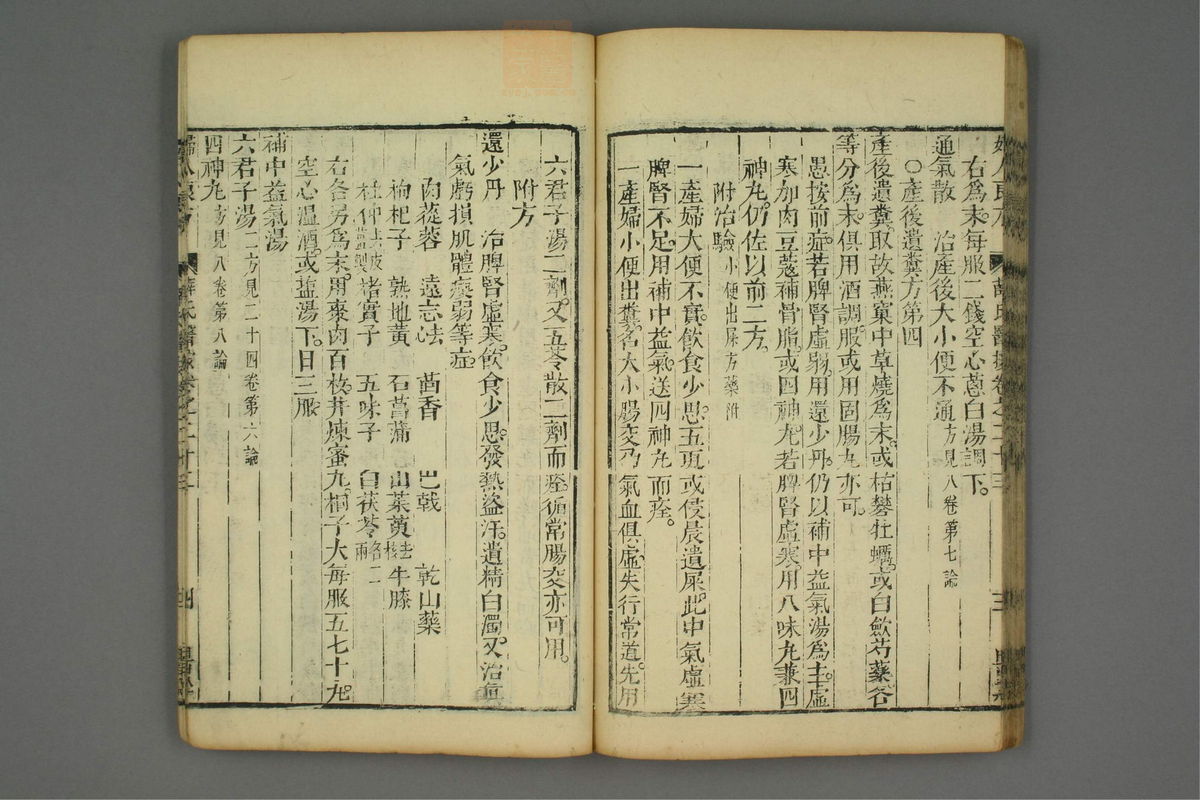 右爲末。每服二錢空心蔥白湯調下。
通氣散　治產後大小便不通方見八卷第七論
〇產後遺糞方第四
產後遺糞。取故燕窠中草燒爲末。或枯礬牡蠣。或白歛芍藥各
等分爲末。俱用酒調服。或用固腸丸亦可。
愚按前症。若脾腎虛弱。用還少丹。仍以補中益氣湯爲主。虛
寒加肉豆蔻補骨脂或四神丸。若脾腎虛寒。用八味丸兼四
神丸。仍佐以前二方。
附治驗小便出屎方藥附
一產婦大便不實。飲食少思。五更或侵晨遺屎。此中氣虛寒
脾腎不足。用補中益氣。送四神丸而痊。
一產婦小便出糞。名大小腸交。乃氣血俱虛。失行常道。先用
六君子湯二劑。又五苓散二劑而痊。循常腸交亦可用。
附方
還少丹　治脾腎虛寒。飲食少思。發熱盜汗。遺精白濁。又治眞
氣虧損肌體瘦弱等症。
肉蓯蓉　遠志去心　茴香　巴戟　乾山藥
枸杞子　熟地黃　石菖蒲　山茱萸去核　牛膝
杜仲去皮薑製　楮實子　五味子　白茯苓各二兩
右各另爲末。用棗肉百枚并煉蜜丸。桐子大每服五七十丸。
空心溫酒。或盐湯下。日三服
補中益氣湯
六君子湯二方見二十四卷第六論
四神丸方見八卷第八論